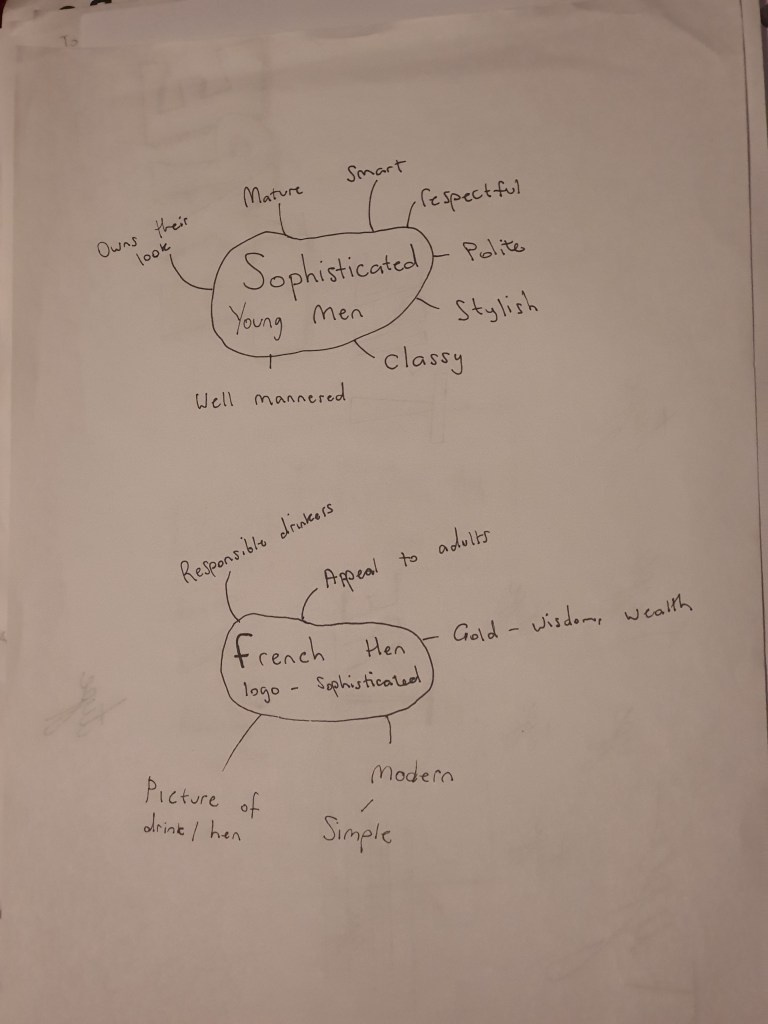 To
Smart
Mature
respectful
Owns their
look
Polite
Sophisticated
Young Men
Stylish
Classy
Well mannered
Responsible drinkers
Appeal to adults
Gold - wisdom, wealth
French Hen
logo - Sophisticated
Modern
Picture of
drink / hen
Simple